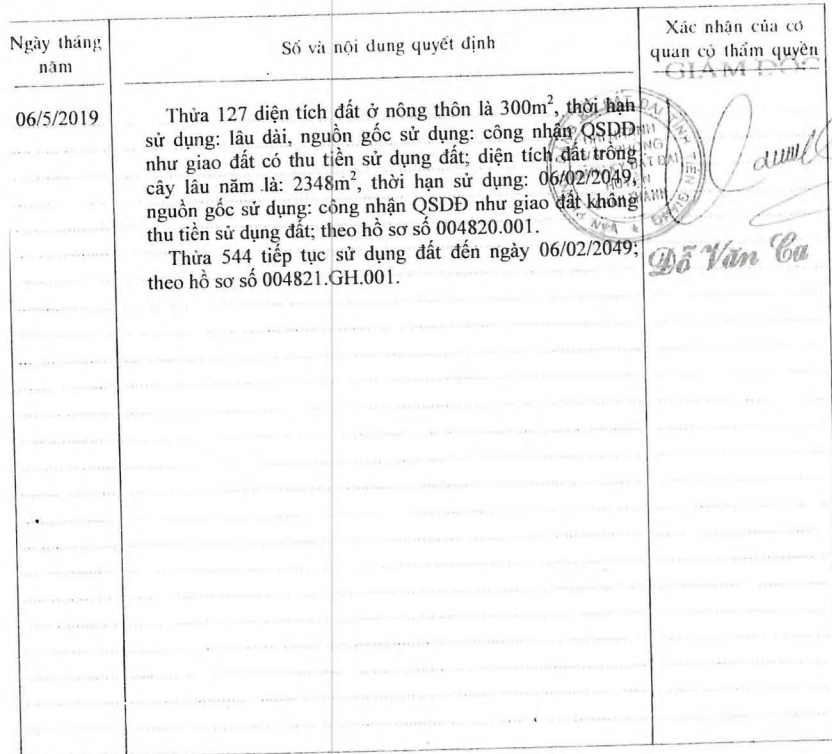 Ngày tháng
năm
Số và nội dung quyết định
Xác nhận của cơ
quan có thẩm quyền
GIÁM ĐỐC
06/5/2019
Thửa 127 diện tích đất ở nông thôn là 300m², thời hạn
sử dụng: lâu dài, nguồn gốc sử dụng: công nhận QSDĐ
như giao đất có thu tiền sử dụng đất; diện tích đất trồng
cây lâu năm là: 2348m², thời hạn sử dụng: 06/02/2049,
nguồn gốc sử dụng: công nhận QSDĐ như giao đất không
thu tiền sử dụng đất; theo hồ sơ số 004820.001.
Thửa 544 tiếp tục sử dụng đất đến ngày 06/02/2049;
theo hồ sơ số 004821.GH.001.
Đỗ Văn Ca